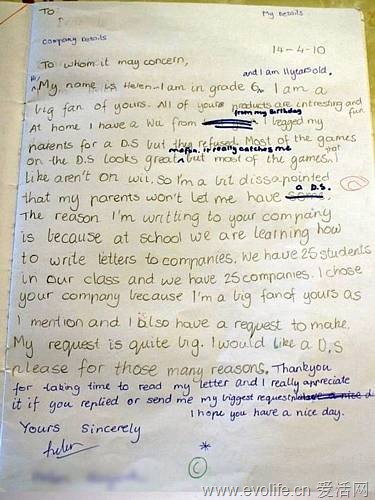 To:
My Details
Company Details
14-4-10
To whom it may concern,
and I am 11years old.
Hi, My name is Helen. I am in grade 6. I am a
big fan of yours. All of your products are intresting and fun.
from my Birthday
At home I have a Wii from I begged my
parents for a D.S but they refused. Most of the games
on the DS looks great but most of the games, that
like aren't on wii. So I'm a bit dissapointed
a D.S.
that my parents won't let me have some.
The reason I'm writting to your company
is because at school we are learning how
to write letters to companies. We have 25 students
in our class and we have 25 companies. I chose
your company because I'm a big fan of yours as
I mention and I also have a request to make.
My request is quite big. I would like a D.S
please for those many reasons. Thankyou
for taking time to read my letter and I really appreciate
it if you replied or send me my biggest request. have a nice d
I hope you have a nice day.
Yours Sincerely
Helen
*
C
www.evolife.cn 爱活网